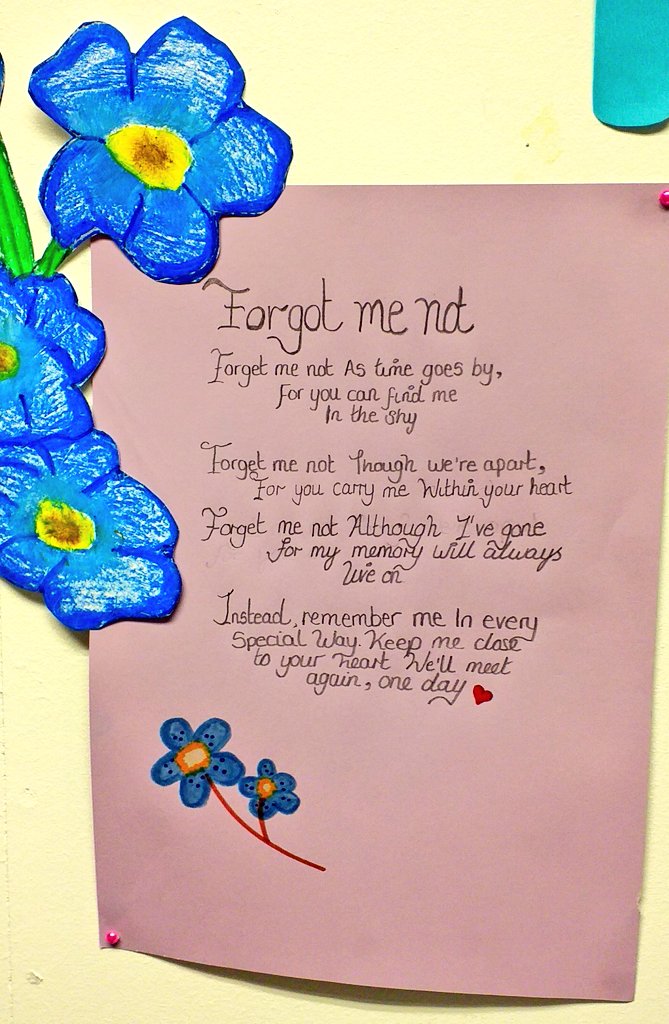 Forgot me not
Forget me not As time goes by,
For you can find me
In the shy
Forget me not Though we're apart,
For you carry me Within your heart
Forget me not Although I've gone
for my memory will always
live on
Instead, remember me In every
Special Way. Keep me close
to your heart We'll meet
again, one day